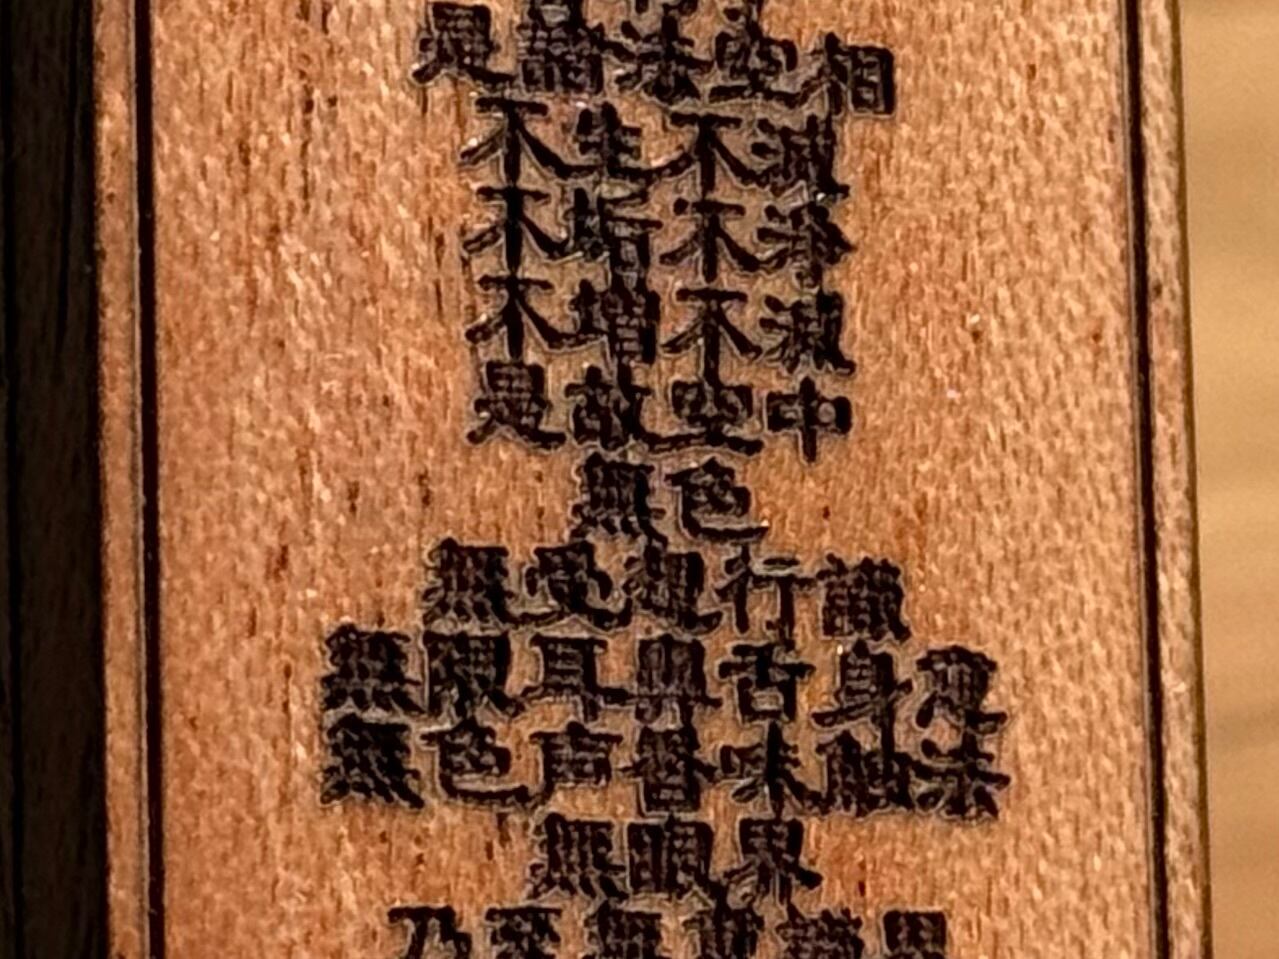 是諸法空相
不生不滅
不垢不浄
不増不減
是故空中
無色
無受想行識
無眼耳鼻舌身意
無色声香味触法
無眼界
乃至無意識界